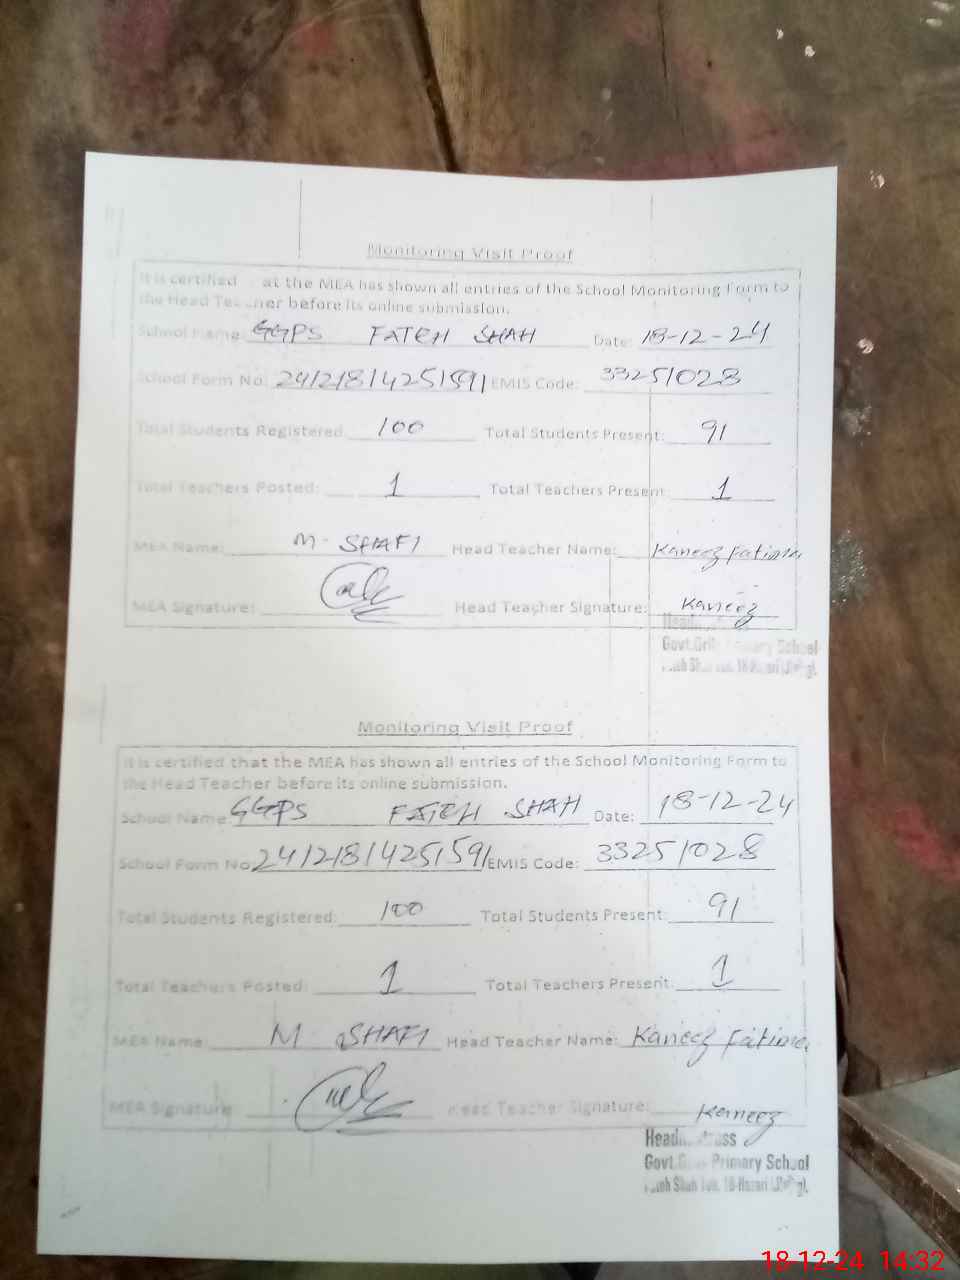 Monitoring Visit Proof
It is certified at the MEA has shown all entries of the School Monitoring Form to
the Head Teacher before its online submission.
School Name: GGPS FATEH SHAH Date: 18-12-24
School Form No. 24121814251591 EMIS Code: 33251028
Total Students Registered: 100 Total Students Present: 91
Total Teachers Posted: 1 Total Teachers Present: 1
MEA Name: M. SHAFI Head Teacher Name: Kaneez Fatima
MEA Signature: Head Teacher Signature: Kaneez
Govt. Primary School
Monitoring Visit Proof
It is certified that the MEA has shown all entries of the School Monitoring Form to
the Head Teacher before its online submission.
School Name GGPS FATEH SHAH Date: 18-12-24
School Form No. 24121814251591 EMIS Code: 33251028
Total Students Registered: 100 Total Students Present: 91
Total Teachers Posted: 1 Total Teachers Present: 1
MEA Name M SHAFI Head Teacher Name: Kaneez Fatima
MEA Signature Head Teacher Signature: Kaneez
Govt. Primary School
Shah 18-Hazari
18-12-24 14:32